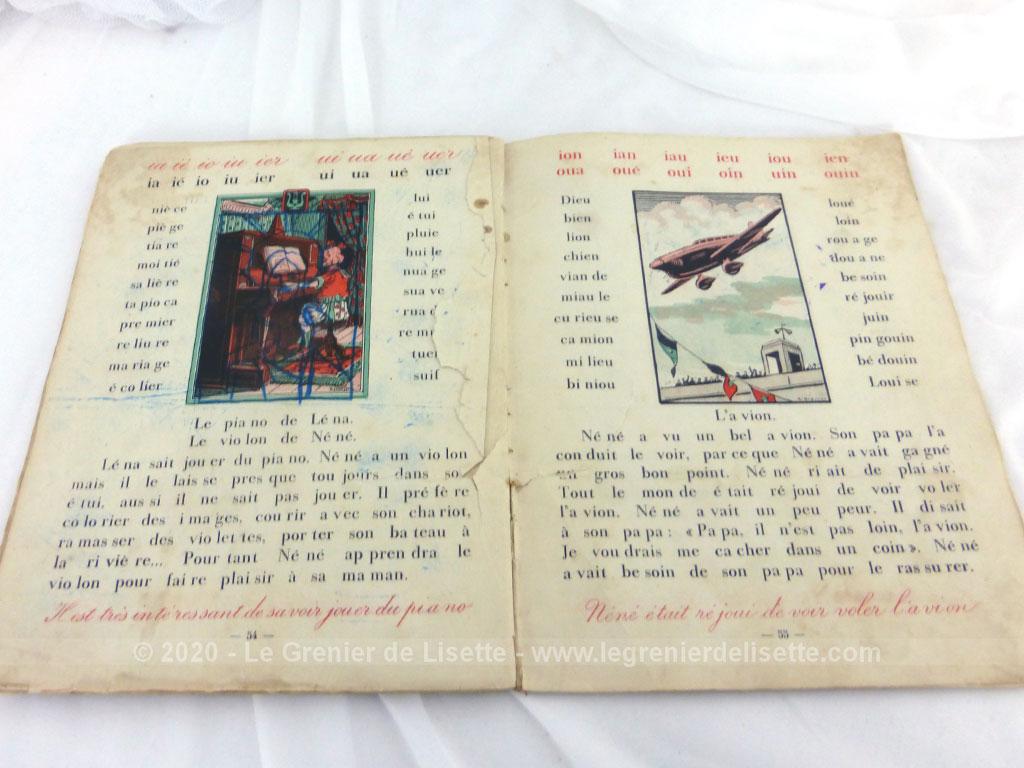 ia ié io iu ier ui ua ué uer
ia ié io iu ier ui ua ué uer
niè ce
piè ge
tia re
moi tié
sa liè re
ta pio ca
pre mier
re liu re
ma ria ge
é co lier
lui
é tui
pluie
hui le
nua ge
sua ve
rua
re mu
tuer
suif
Le pia no de Lé na.
Le vio lon de Né né.
Lé na sait jou er du pia no. Né né a un vio lon
mais il le lais se pres que tou jours dans so
é tui, aus si il ne sait pas jou er. Il pré fè re
co lo rier des i ma ges, cou rir a vec son cha riot,
ra mas ser des vio let tes, por ter son ba teau à
la ri viè re... Pour tant Né né ap pren dra le
vio lon pour fai re plai sir à sa ma man.
Il est très in té res sant de sa voir jouer du pi a no
— 54 —
ion ian iau ieu iou ien
oua oué oui oin uin ouin
Dieu
bien
lion
chien
vian de
miau le
cu rieu se
ca mion
mi lieu
bi niou
loué
loin
rou a ge
dou a ne
be soin
ré jouir
juin
pin gouin
bé douin
Loui se
L'a vion.
Né né a vu un bel a vion. Son pa pa l'a
con duit le voir, par ce que Né né a vait ga gné
un gros bon point. Né né ri ait de plai sir.
Tout le mon de é tait ré joui de voir vo ler
l'a vion. Né né a vait un peu peur. Il di sait
à son pa pa : « Pa pa, il n'est pas loin, l'a vion.
Je vou drais me ca cher dans un coin ». Né né
a vait be soin de son pa pa pour le ras su rer.
Né né é tait ré joui de voir voler l'a vi on
— 55 —
© 2020 - Le Grenier de Lisette - www.legrenierdelisette.com